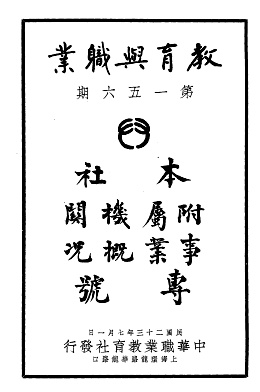 教育與職業
第一五六期
本社
附屬機關
事業概況
專號
民國二十三年七月一日
中華職業教育社發行
上海環龍路華龍路口